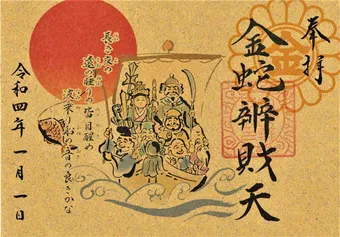 奉拝
金
金蛇辨財天
長き夜の
遠の眠りの皆目醒め
波乗り船の音の良きかな
令和四年一月一日